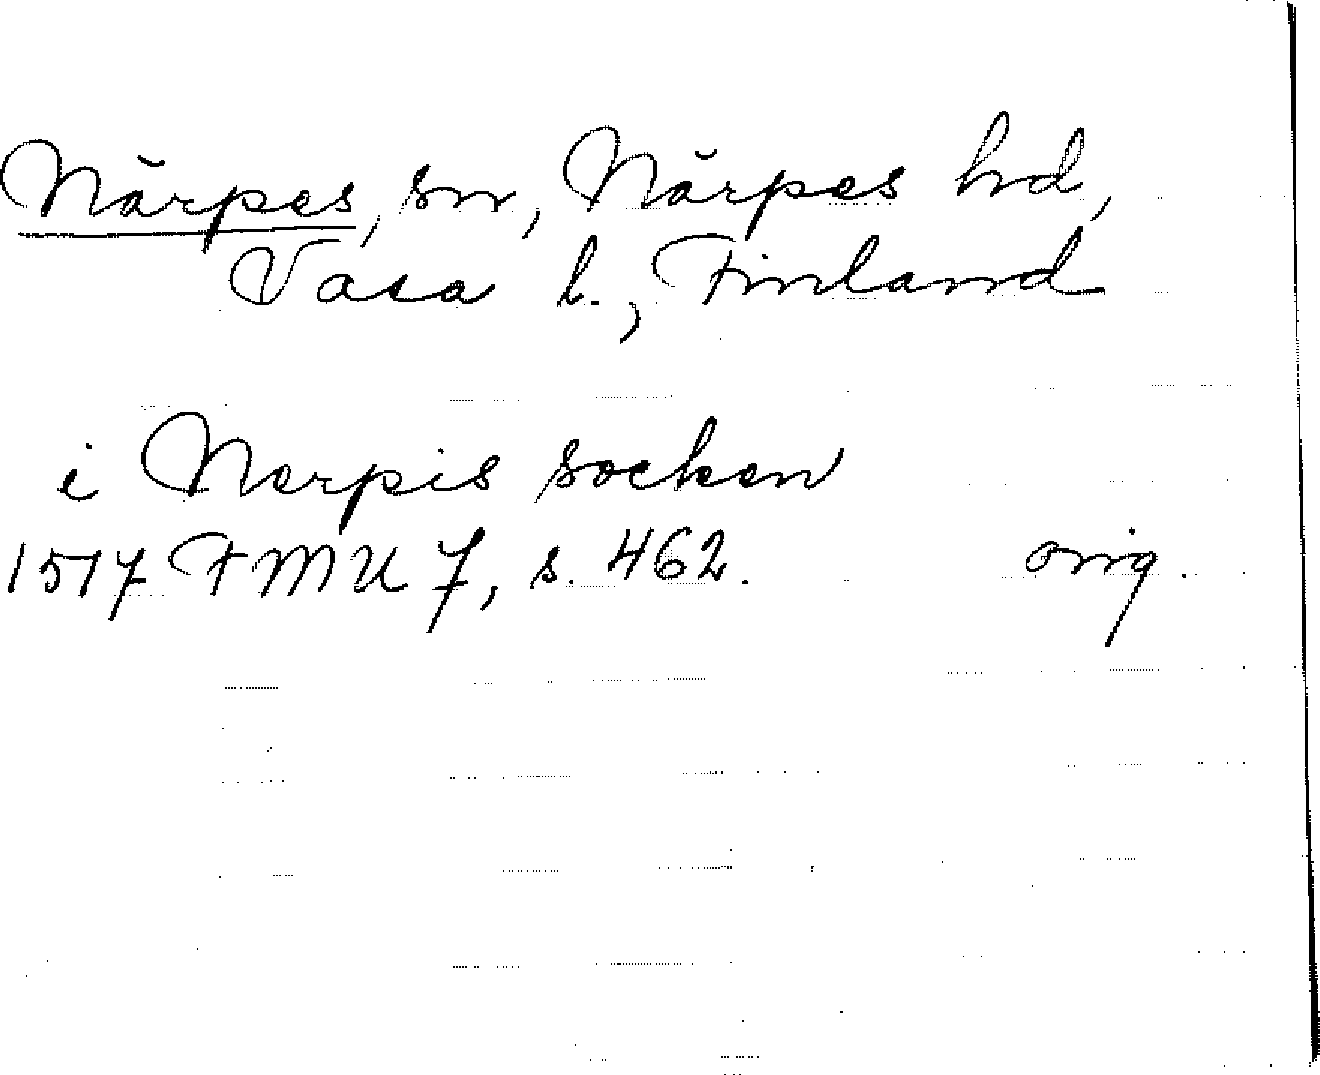 Närpes, sn, Närpes hd,
Vasa l., Finland
i Nerpis socken
1517 FMU 7, s. 462. orig.